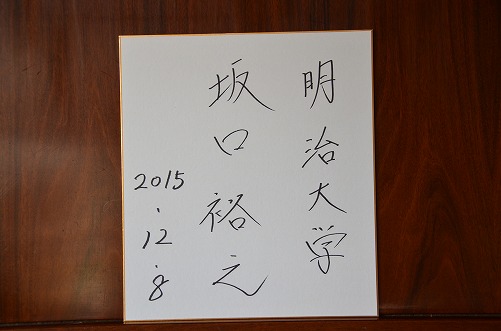 明治大学
坂口裕之
2015.12.8